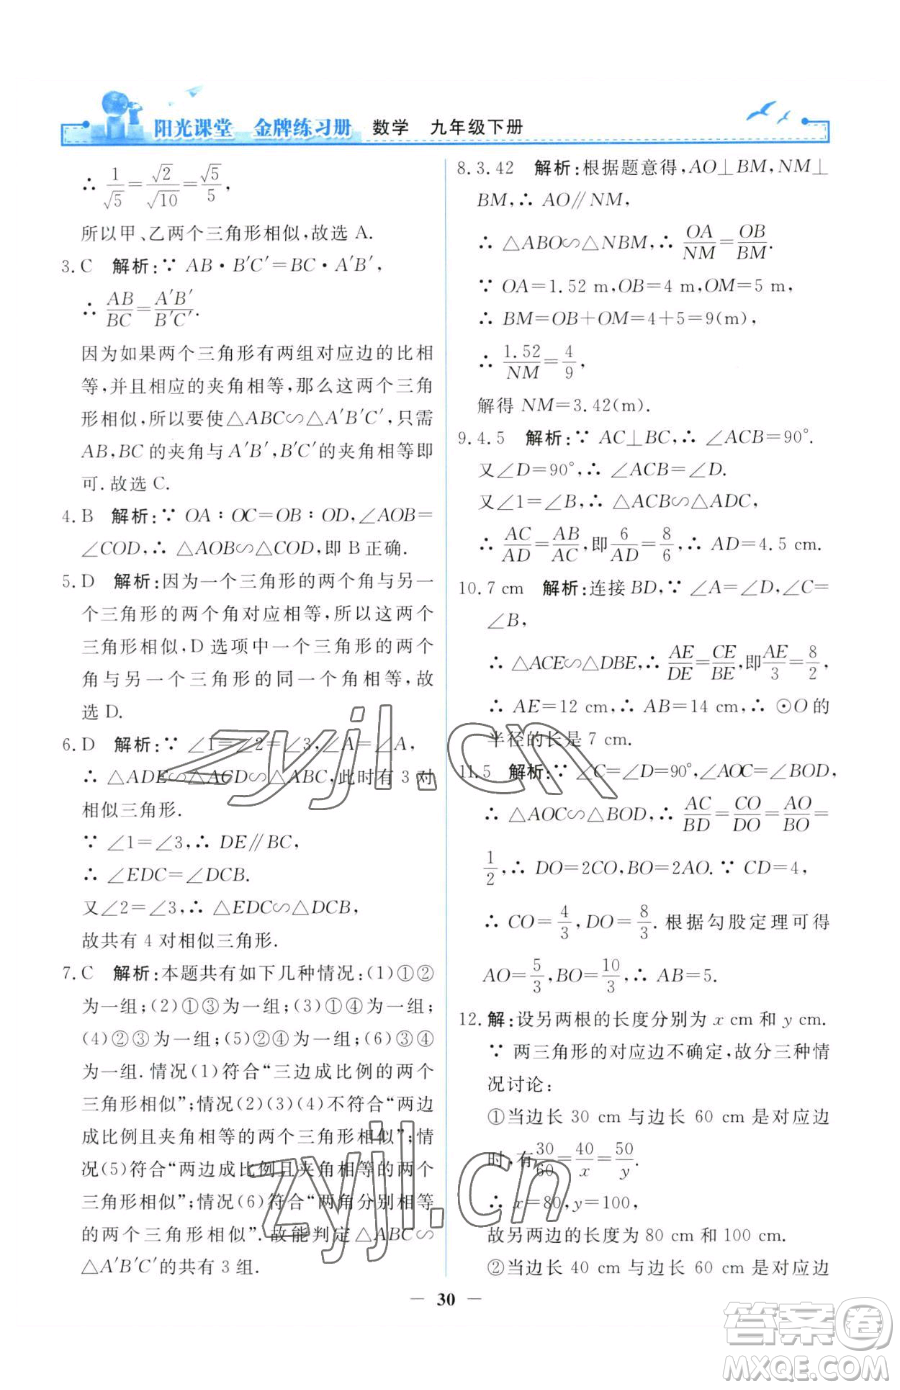 阳光课堂 金牌练习册 数学 九年级下册
∴ 1/√5=√2/√10=√5/5,
所以甲、乙两个三角形相似,故选 A.
3. C 解析:∵ AB·B′C′=BC·A′B′,
∴ AB/BC=A′B′/B′C′.
因为如果两个三角形有两组对应边的比相
等,并且相应的夹角相等,那么这两个三角
形相似,所以要使△ABC∽△A′B′C′,只需
AB,BC的夹角与A′B′,B′C′的夹角相等即
可.故选 C.
4. B 解析:∵ OA∶OC=OB∶OD,∠AOB=
∠COD,∴ △AOB∽△COD,即 B 正确.
5. D 解析:因为一个三角形的两个角与另一
个三角形的两个角对应相等,所以这两个
三角形相似,D 选项中一个三角形的两个
角与另一个三角形的同一个角相等,故
选 D.
6. D 解析:∵ ∠1=∠2=∠3,∠A=∠A,
∴ △ADE∽△ACD∽△ABC,此时有 3 对
相似三角形.
∵ ∠1=∠3,∴ DE∥BC,
∴ ∠EDC=∠DCB.
又∠2=∠3,∴ △EDC∽△DCB,
故共有 4 对相似三角形.
7. C 解析:本题共有如下几种情况:(1)①②
为一组;(2)①③为一组;(3)①④为一组;
(4)②③为一组;(5)②④为一组;(6)③④
为一组.情况(1)符合“三边成比例的两个
三角形相似”;情况(2)(3)(4)不符合“两边
成比例且夹角相等的两个三角形相似”;情
况(5)符合“两边成比例且夹角相等的两个
三角形相似”;情况(6)符合“两角分别相等
的两个三角形相似”.故能判定△ABC∽
△A′B′C′的共有 3 组.
8. 3.42 解析:根据题意得,AO⊥BM,NM⊥
BM,∴ AO∥NM,
∴ △ABO∽△NBM,∴ OA/NM=OB/BM.
∵ OA=1.52 m,OB=4 m,OM=5 m,
∴ BM=OB+OM=4+5=9(m),
∴ 1.52/NM=4/9,
解得 NM=3.42(m).
9. 4.5 解析:∵ AC⊥BC,∴ ∠ACB=90°.
又∠D=90°,∴ ∠ACB=∠D.
又∠1=∠B,∴ △ACB∽△ADC,
∴ AC/AD=AB/AC,即6/AD=8/6,∴ AD=4.5 cm.
10. 7 cm 解析:连接 BD,∵ ∠A=∠D,∠C=
∠B,
∴ △ACE∽△DBE,∴ AE/DE=CE/BE,即AE/3=8/2,
∴ AE=12 cm,∴ AB=14 cm,∴ ⊙O 的
半径的长是 7 cm.
11. 5 解析:∵ ∠C=∠D=90°,∠AOC=∠BOD,
∴ △AOC∽△BOD,∴ AC/BD=CO/DO=AO/BO=
1/2,∴ DO=2CO,BO=2AO.∵ CD=4,
∴ CO=4/3,DO=8/3.根据勾股定理可得
AO=5/3,BO=10/3,∴ AB=5.
12. 解:设另两根的长度分别为 x cm 和 y cm.
∵ 两三角形的对应边不确定,故分三种情
况讨论:
①当边长 30 cm 与边长 60 cm 是对应边
时,有30/60=40/x=50/y.
∴ x=80,y=100,
故另两边的长度为 80 cm 和 100 cm.
②当边长 40 cm 与边长 60 cm 是对应边
— 30 —
zyjl.cn
zyjl.cn
答案圈
MXQE.COM